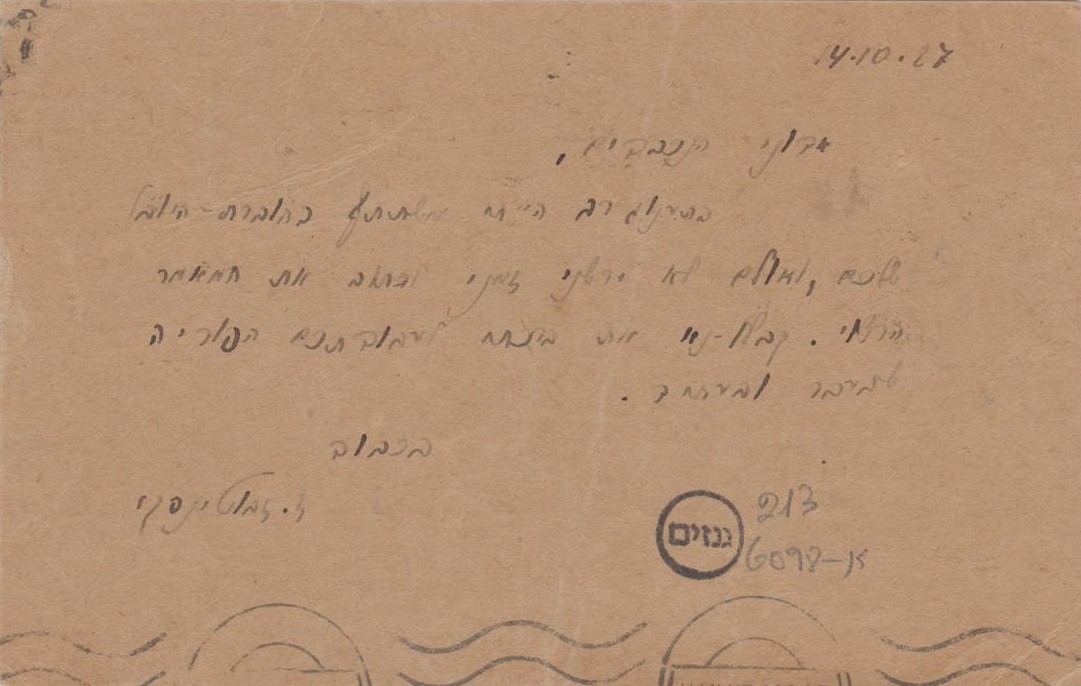 14.10.27
אדוני הנכבדים,
בתענוג רב הייתי משתתף בחוברת-היובל
שלכם, ואולם לא ירשני זמני לכתוב את המאמר
הרצוי. קבלו-נא את ברכתי לעבודתכם הפוריה
שבעבר ובעתיד.
בכבוד
ז. זבוטינסקי
גנזים
213
6098-א